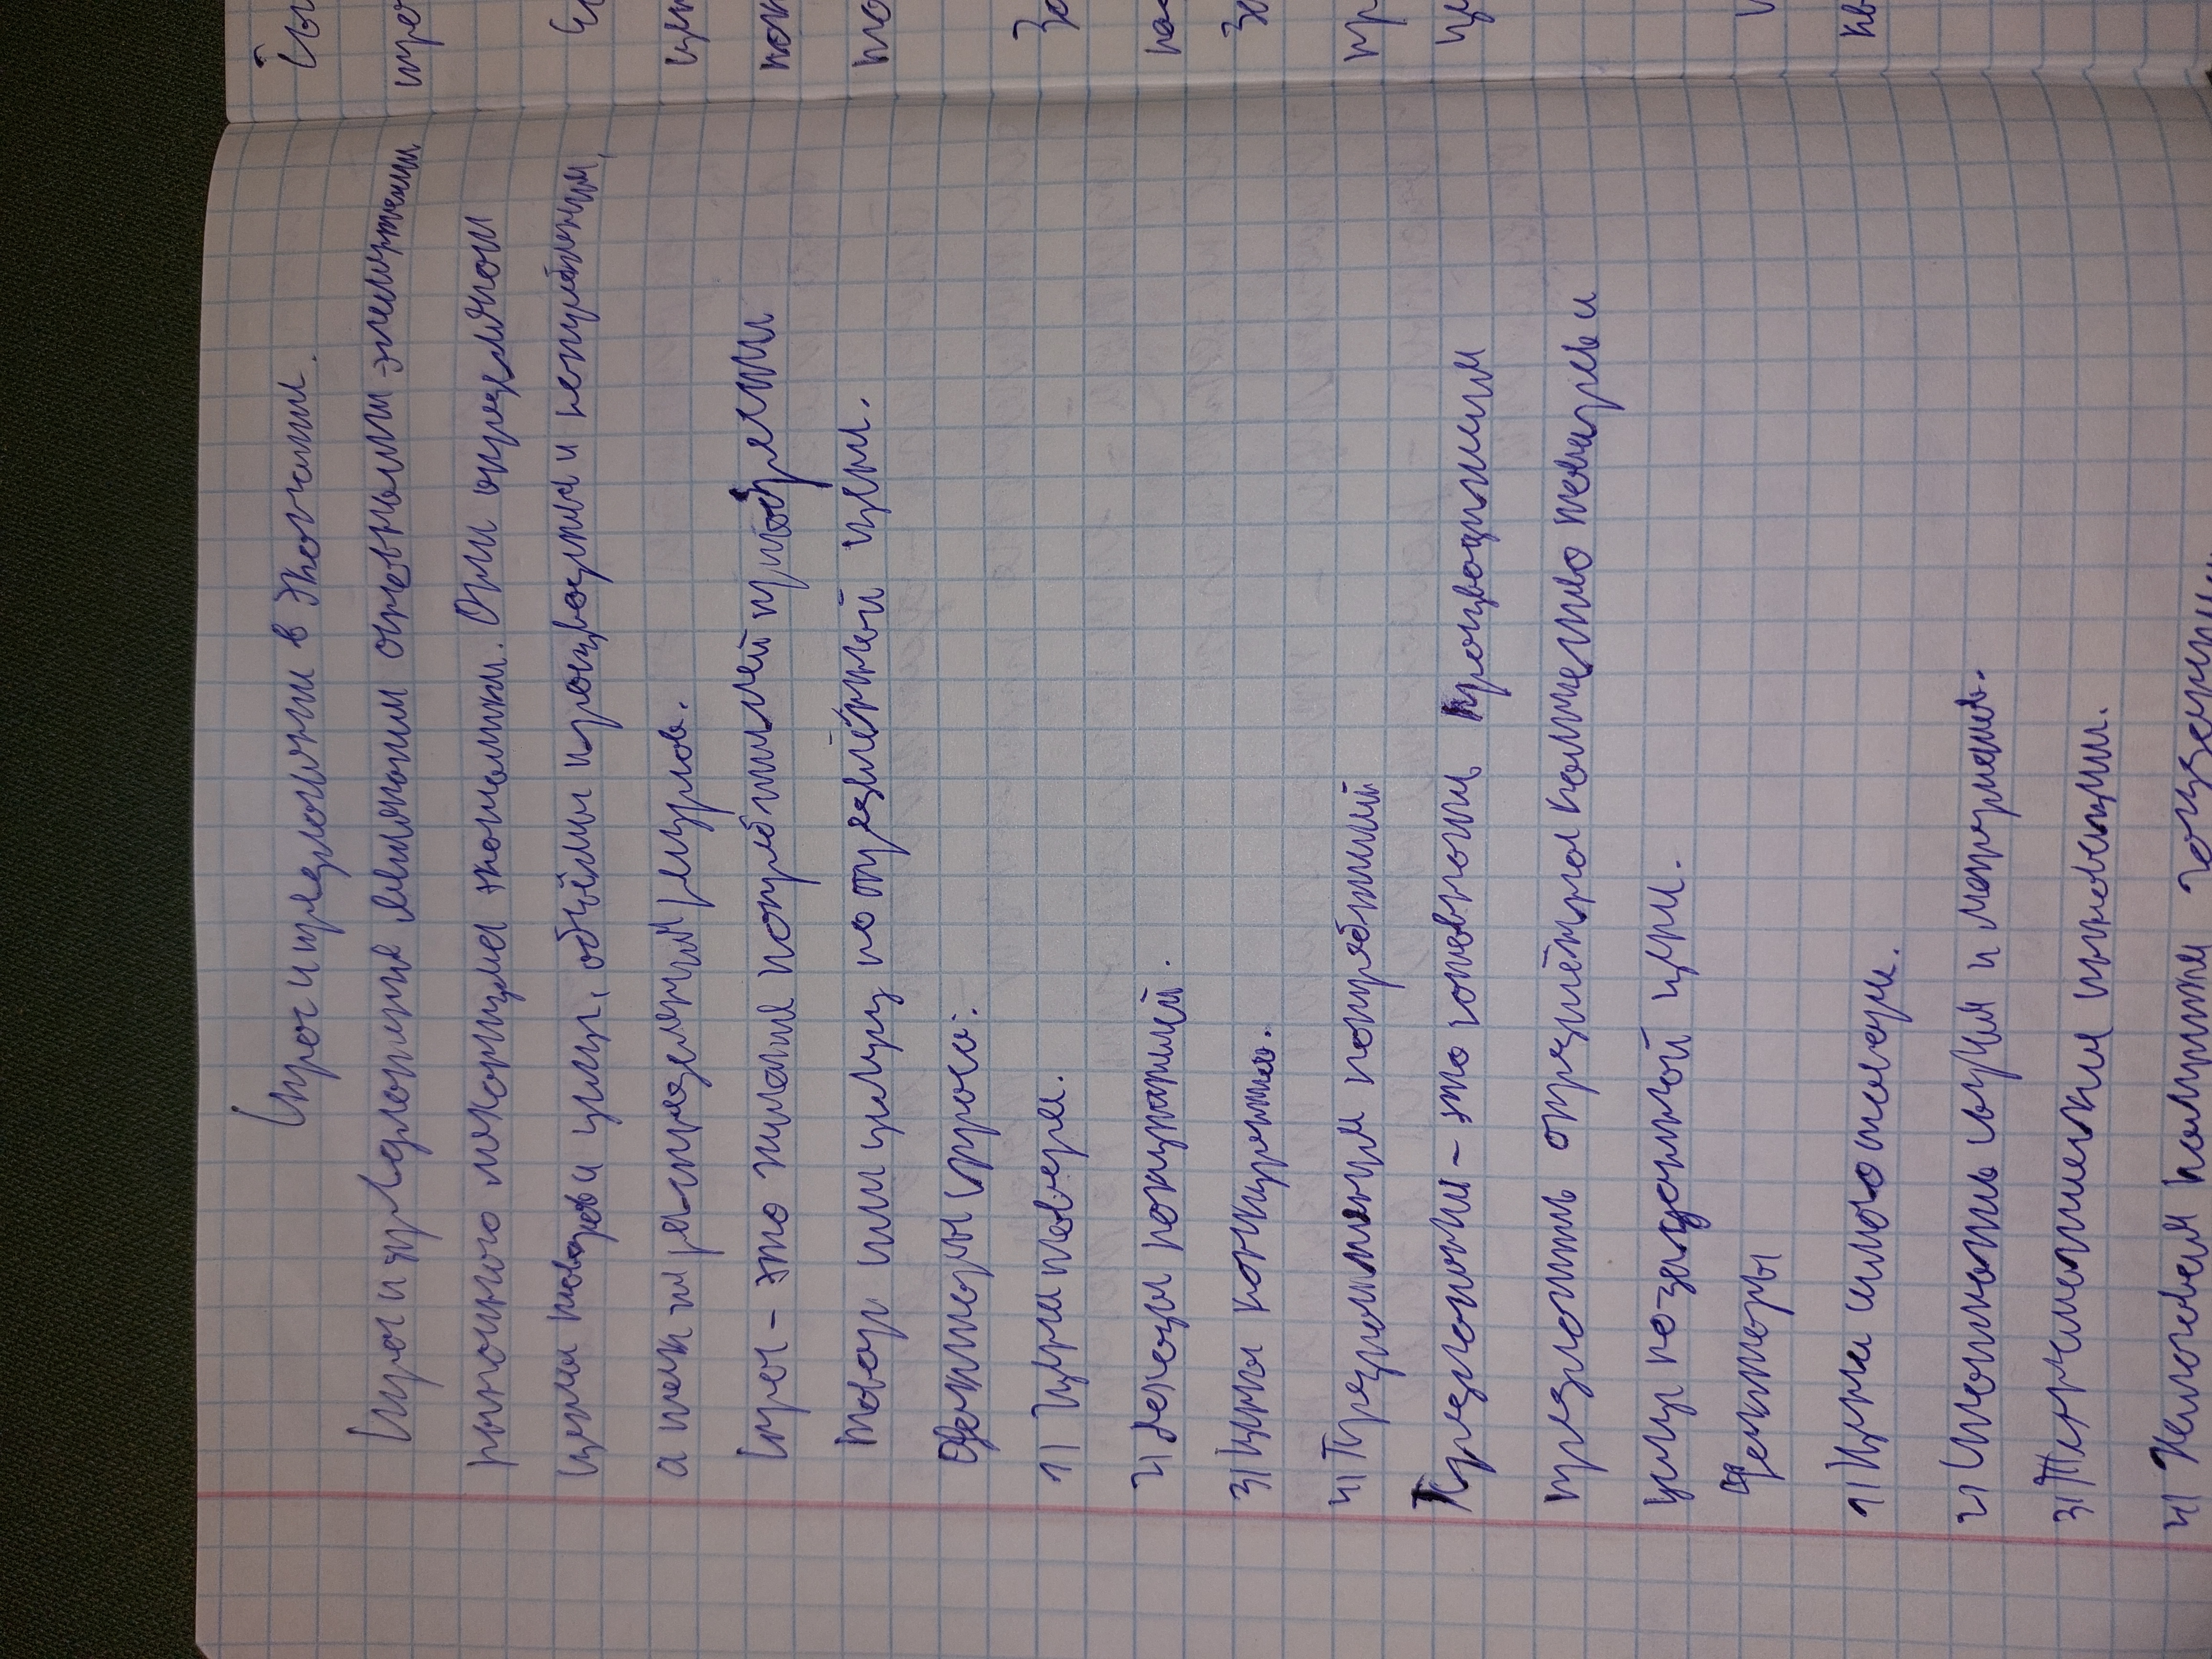 Спрос и предложении в экономии.
Спрос и предложение являются основными элементами
рыночного механизма экономики. Они определяют
цены товаров и услуг, объёмы производства и потребления,
а так-же распределений ресурсов.
Спрос - это желание потребителей приобрести
товар или услугу по определённой цене.
Факторы спроса:
1) Цена товара.
2) Доходы покупателей.
3) Цены конкурентов.
4) Предпочтения потребителей
Предложении - это готовность производителя
предложить определённое количество товаров и
услуг по заданной цене.
Факторы
1) Цена самого товара.
2) Стоимость сырья и материалов.
3) Технологические инновации.
4) Налоговая политика государства